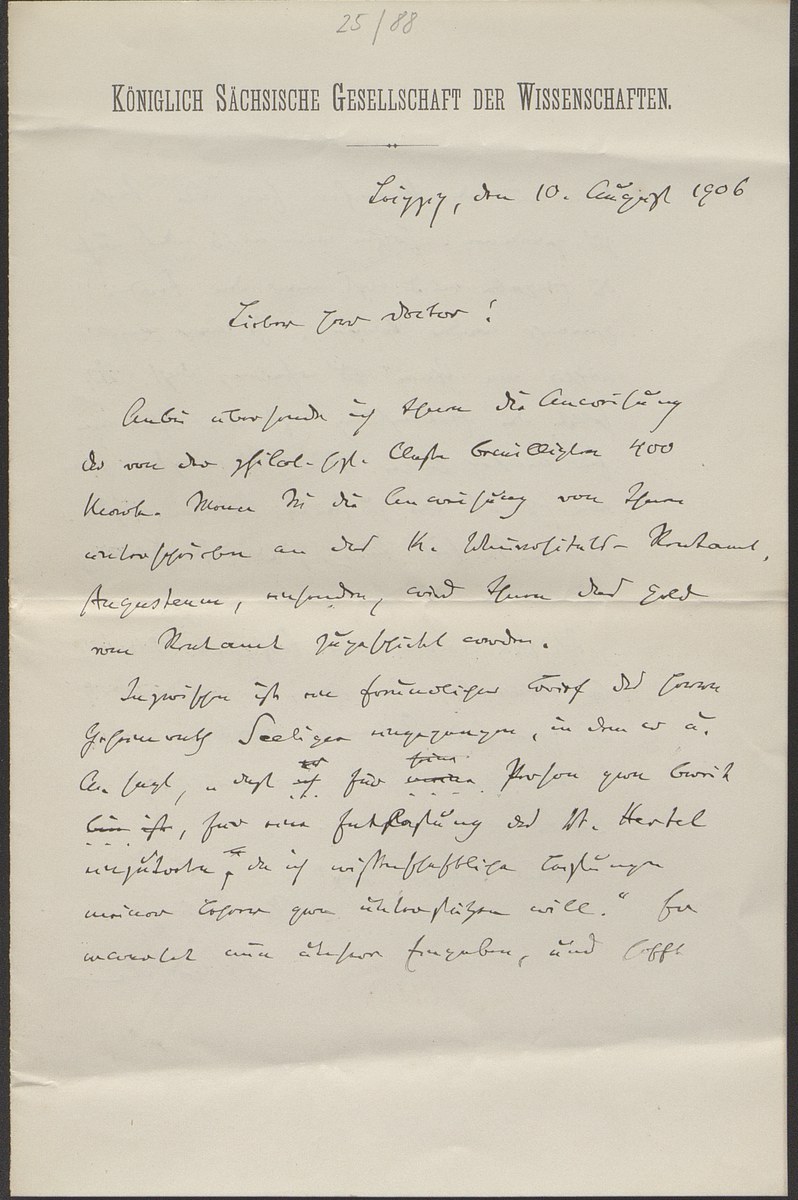 25/88
KÖNIGLICH SÄCHSISCHE GESELLSCHAFT DER WISSENSCHAFTEN.
Leipzig, den 10. August 1906
Lieber Herr Doctor!
Anbei übersende ich Ihnen die Anweisung
der von der philol.-hist. Classe bewilligten 400
Mark. Wenn Sie die Anweisung von Ihnen
unterschrieben an das K. Universitäts-Rentamt,
Augusteum, einsenden, wird Ihnen das Geld
vom Rentamt zugeschickt werden.
Inzwischen ist ein freundlicher Brief des Herrn
Geheimrath Seeliger eingegangen, in dem er u.
A. sagt, „dass er ich für seine meine Person gern bereit
bin ist, für eine Entlastung des Dr. Hertel
einzutreten, da ich wissenschaftliche Leistungen
meiner Lehrer gern unterstützen will.“ Er
erwartet nun unsere Eingaben, und hofft